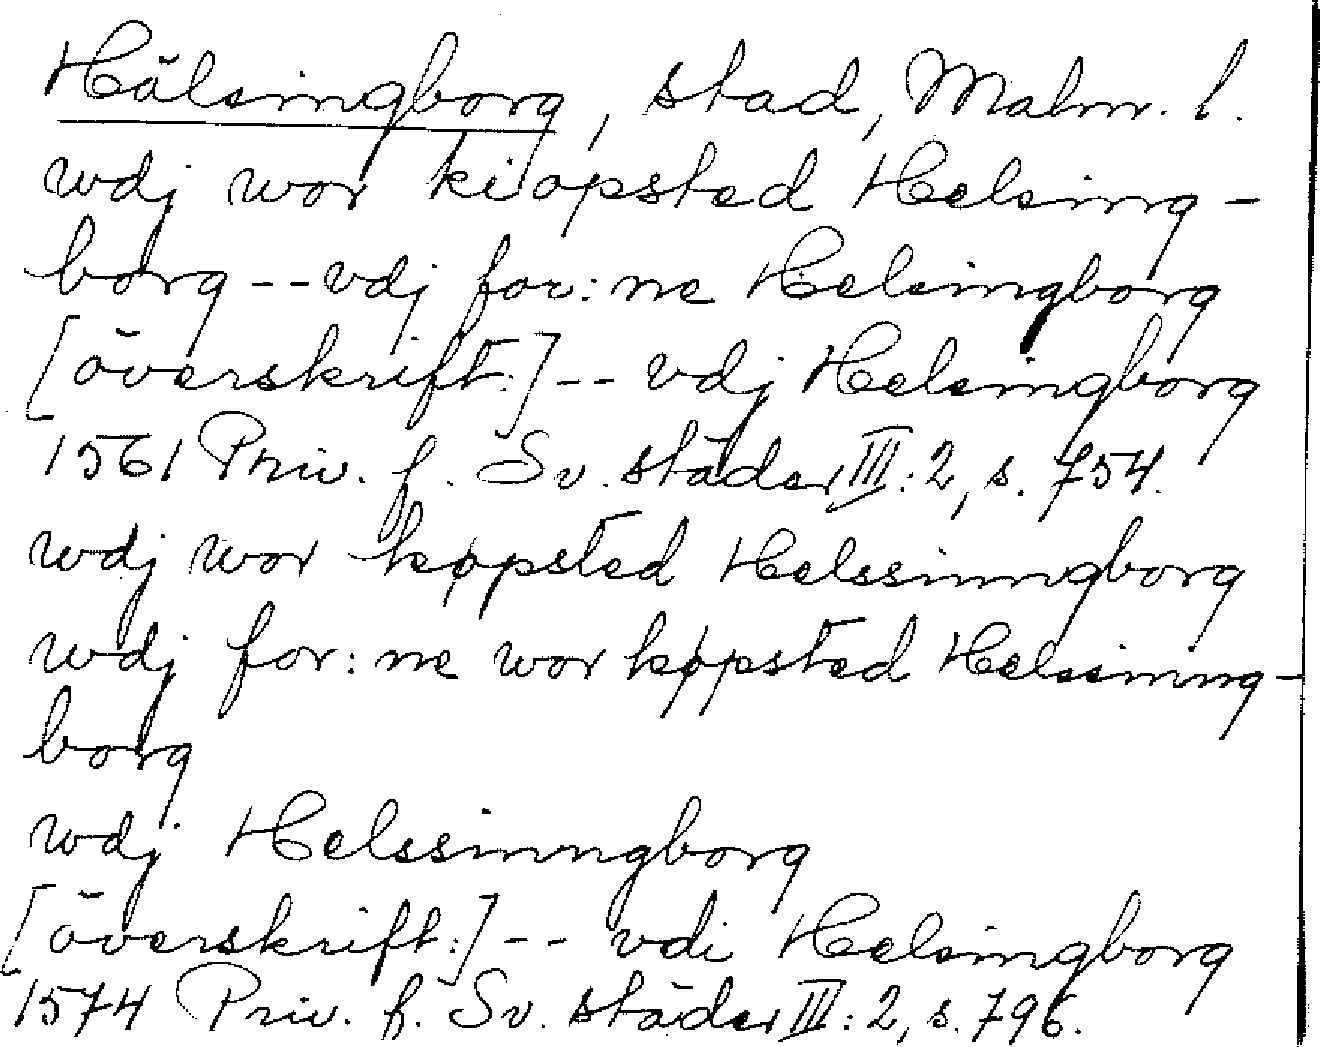 Hälsingborg, stad, Malm. l.
wdj wor kiøpsted Helsing-
borg -- vdj for:ne Helsingborg
[överskrift:] -- vdj Helsingborg
1561 Priv. f. Sv. städer III:2, s. 754.
wdj wor køpsted Helssinngborg
wdj for:ne wor køpsted Helssinng-
borg
wdj Helssinngborg
[överskrift:] -- vdi Helsingborg
1574 Priv. f. Sv. städer III:2, s. 796.